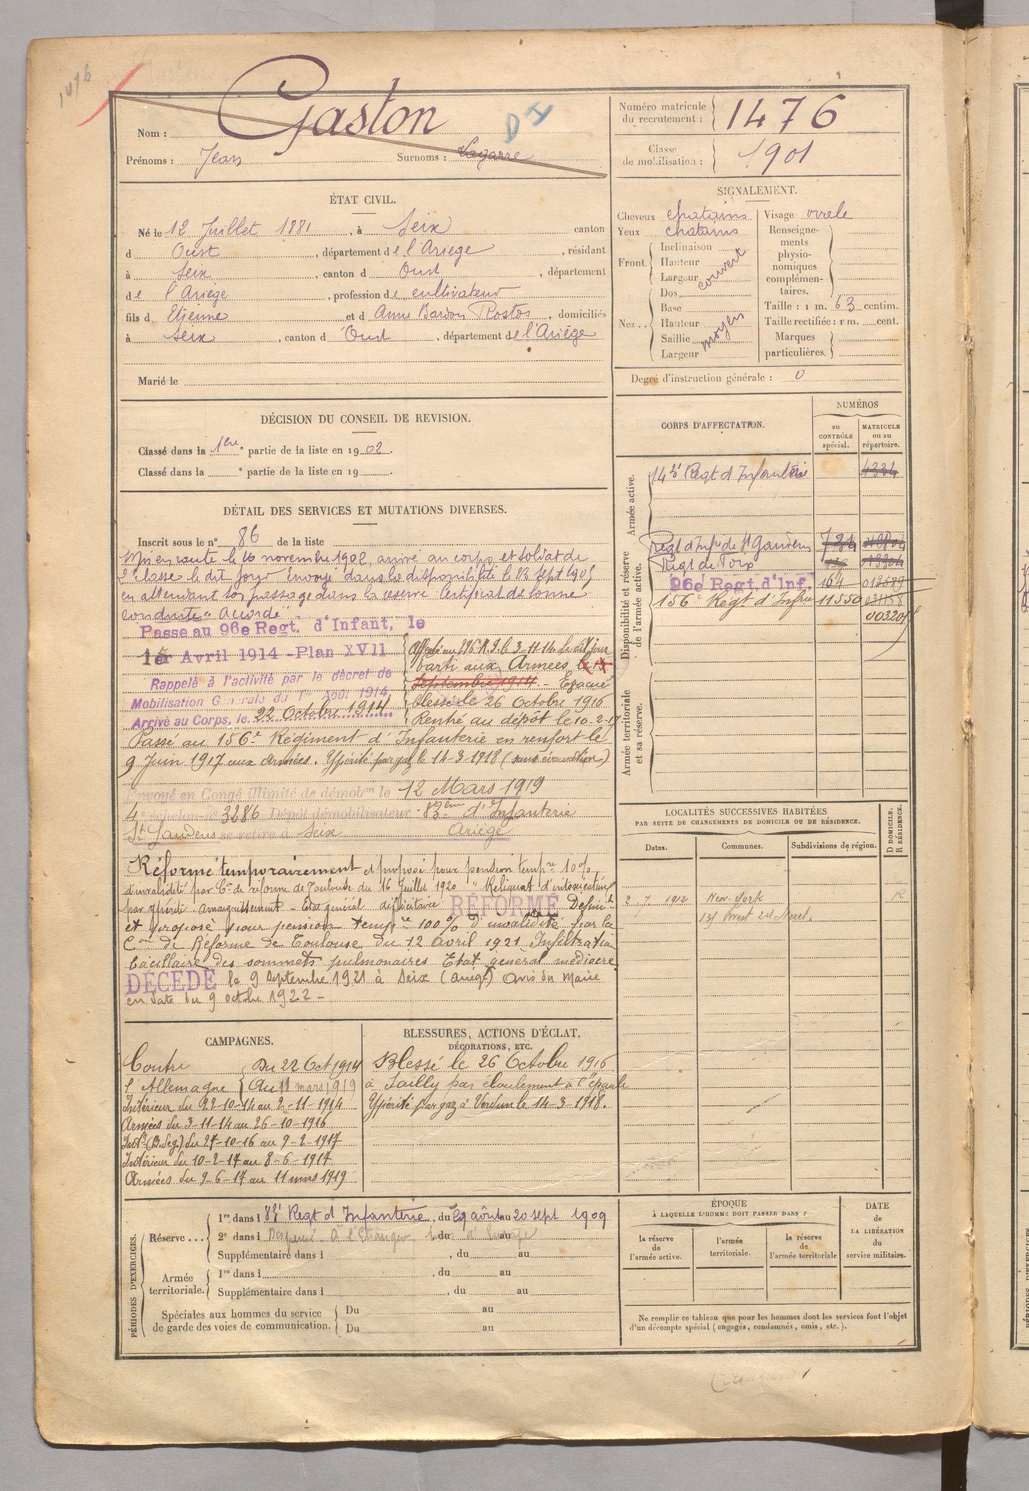 1476
Gaston
D I
Nom :
Prénoms : Jean Surnoms : Lagarre
Numéro matricule du recrutement : 1476
Classe de mobilisation : 1901
ÉTAT CIVIL.
Né le 12 Juillet 1881, à Seix canton
d Oust, département de l'Ariège, résidant
à Seix, canton d Oust, département
de l'Ariège, profession de cultivateur
fils d Etienne et d Anne, domiciliés
à Seix, canton d Oust, département de l'Ariège
Marié le
SIGNALEMENT.
Cheveux chatains Visage ovale
Yeux chatains
Front. Inclinaison Hauteur Largeur couvert
Nez... Dos Base Hauteur Saillie Largeur moyen
Renseignements physionomiques complémentaires.
Taille : 1 m. 63 centim.
Taille rectifiée : 1 m. cent.
Marques particulières.
Degré d'instruction générale : 0
DÉCISION DU CONSEIL DE REVISION.
Classé dans la 1ère partie de la liste en 1902
Classé dans la e partie de la liste en 19
DÉTAIL DES SERVICES ET MUTATIONS DIVERSES.
Inscrit sous le n° 86 de la liste
Mis en route le 16 novembre 1902, arrivé au corps et soldat de
2e classe le dit jour. Envoyé dans la disponibilité le 23 sept 1905
en attendant son passage dans la réserve. Certificat de bonne
conduite "Accordé"
Passé au 96e Regt. d'Infant. le
1er Avril 1914 - Plan XVII
Rappelé à l'activité par le décret de
Mobilisation Générale du 1er Août 1914.
Arrivé au Corps, le 22 Octobre 1914
Parti aux Armées le
Septembre 1914. - Evacué
blessé le 26 Octobre 1916
Rentré au dépôt le 10-2-17
Passé au 156e Régiment d'Infanterie en renfort le
9 Juin 1917 aux armées. Ypérité par gaz le 14-3-1918 (sans évacuation)
Envoyé en Congé illimité de démobon le 12 Mars 1919
4e échelon n° 3286 Dépôt démobilisateur 83ème d'Infanterie
St Gaudens se retire à Seix Ariège
Réformé temporairement et proposé pour pension tempre 10%
d'invalidité par Con de réforme de Toulouse du 16 Juillet 1920 "Reliquat d'intoxication
par ypérite. amaigrissement - Etat général déficitaire RÉFORMÉ Définit
et proposé pour pension tempre 100% d'invalidité par la
Con de Réforme de Toulouse du 12 Avril 1921 Infiltration
bacillaire des sommets pulmonaires Etat général médiocre
DÉCÉDÉ le 9 Septembre 1921 à Seix (Ariège) avis du Maire
en date du 9 octobre 1922 -
CORPS D'AFFECTATION.
NUMÉROS
au CONTRÔLE spécial.
MATRICULE ou au répertoire.
Armée active.
Disponibilité et réserve de l'armée active.
Armée territoriale et sa réserve.
Regt d'Infanterie 4334
Regt d'Infie de St Gaudens
Regt de Foix
96e Regt. d'Inf. 164
156e Regt d'Infrie 11550
LOCALITÉS SUCCESSIVES HABITÉES
PAR SUITE DE CHANGEMENTS DE DOMICILE OU DE RÉSIDENCE.
Dates. Communes. Subdivisions de région. D DOMICILE. R RÉSIDENCE.
2-7-1912 New-York R
West Street
CAMPAGNES.
Contre l'Allemagne Du 22 Oct 1914
Au 11 mars 1919
Intérieur du 22-10-14 au 2-11-1914
Armées du 3-11-14 au 26-10-1916
Int. du 27-10-16 au 9-2-1917
Intérieur du 10-2-17 au 8-6-1917
Armées du 9-6-17 au 11 mars 1919
BLESSURES, ACTIONS D'ÉCLAT, DÉCORATIONS, ETC.
Blessé le 26 Octobre 1916
à Sailly par éboulement à l'épaule
Ypérité par gaz à Verdun le 14-3-1918.
PÉRIODES D'EXERCICES.
Réserve.... 1re dans l Regt d'Infanterie, du 29 août au 20 sept 1909
2e dans l Dispensé. A l'Etranger, du au
Supplémentaire dans l , du au
Armée territoriale. 1re dans l , du au
Supplémentaire dans l , du au
Spéciales aux hommes du service de garde des voies de communication. Du au
Du au
ÉPOQUE
À LAQUELLE L'HOMME DOIT PASSER DANS :
la réserve de l'armée active. l'armée territoriale. la réserve de l'armée territoriale
DATE de LA LIBÉRATION du service militaire.
Ne remplir ce tableau que pour les hommes dont les services font l'objet
d'un décompte spécial (engagés, condamnés, omis, etc.).